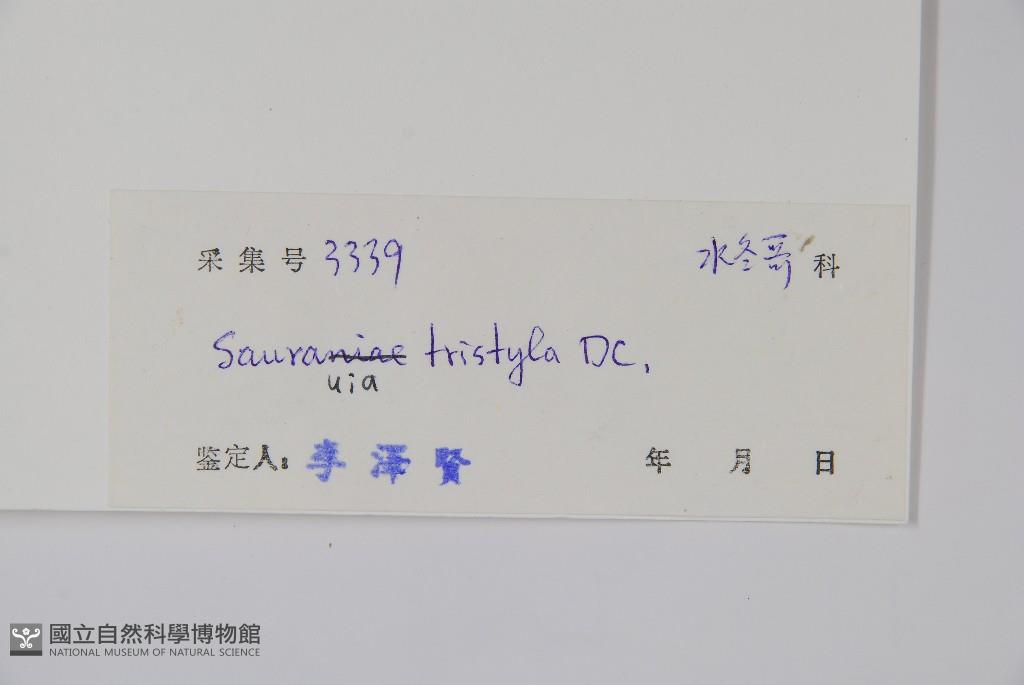 采集号 3339 水冬哥 科
Sauraniae tristyla DC.
uia
鉴定人: 李澤賢 年 月 日
國立自然科學博物館
NATIONAL MUSEUM OF NATURAL SCIENCE